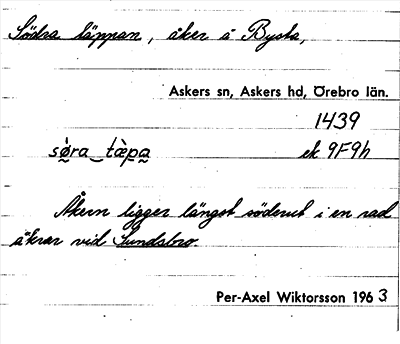 Södra täppan, åker å Bysta,
Askers sn, Askers hd, Örebro län.
1439
sø̀ra‿tæ̀pa ek 9F9h
Åkern ligger längst söderut i en rad
åkrar vid Sundsbro.
Per-Axel Wiktorsson 1963